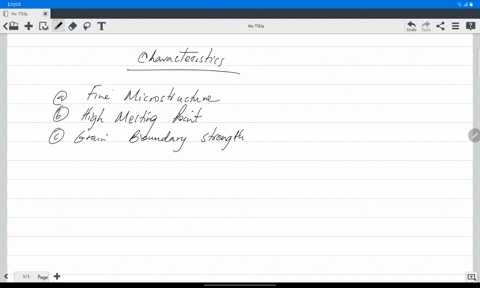 No Title
No Title
Undo
Redo
Characteristics
(a) Fine Microstructure
(b) High Melting Point
(c) Grain Boundary strength
Page